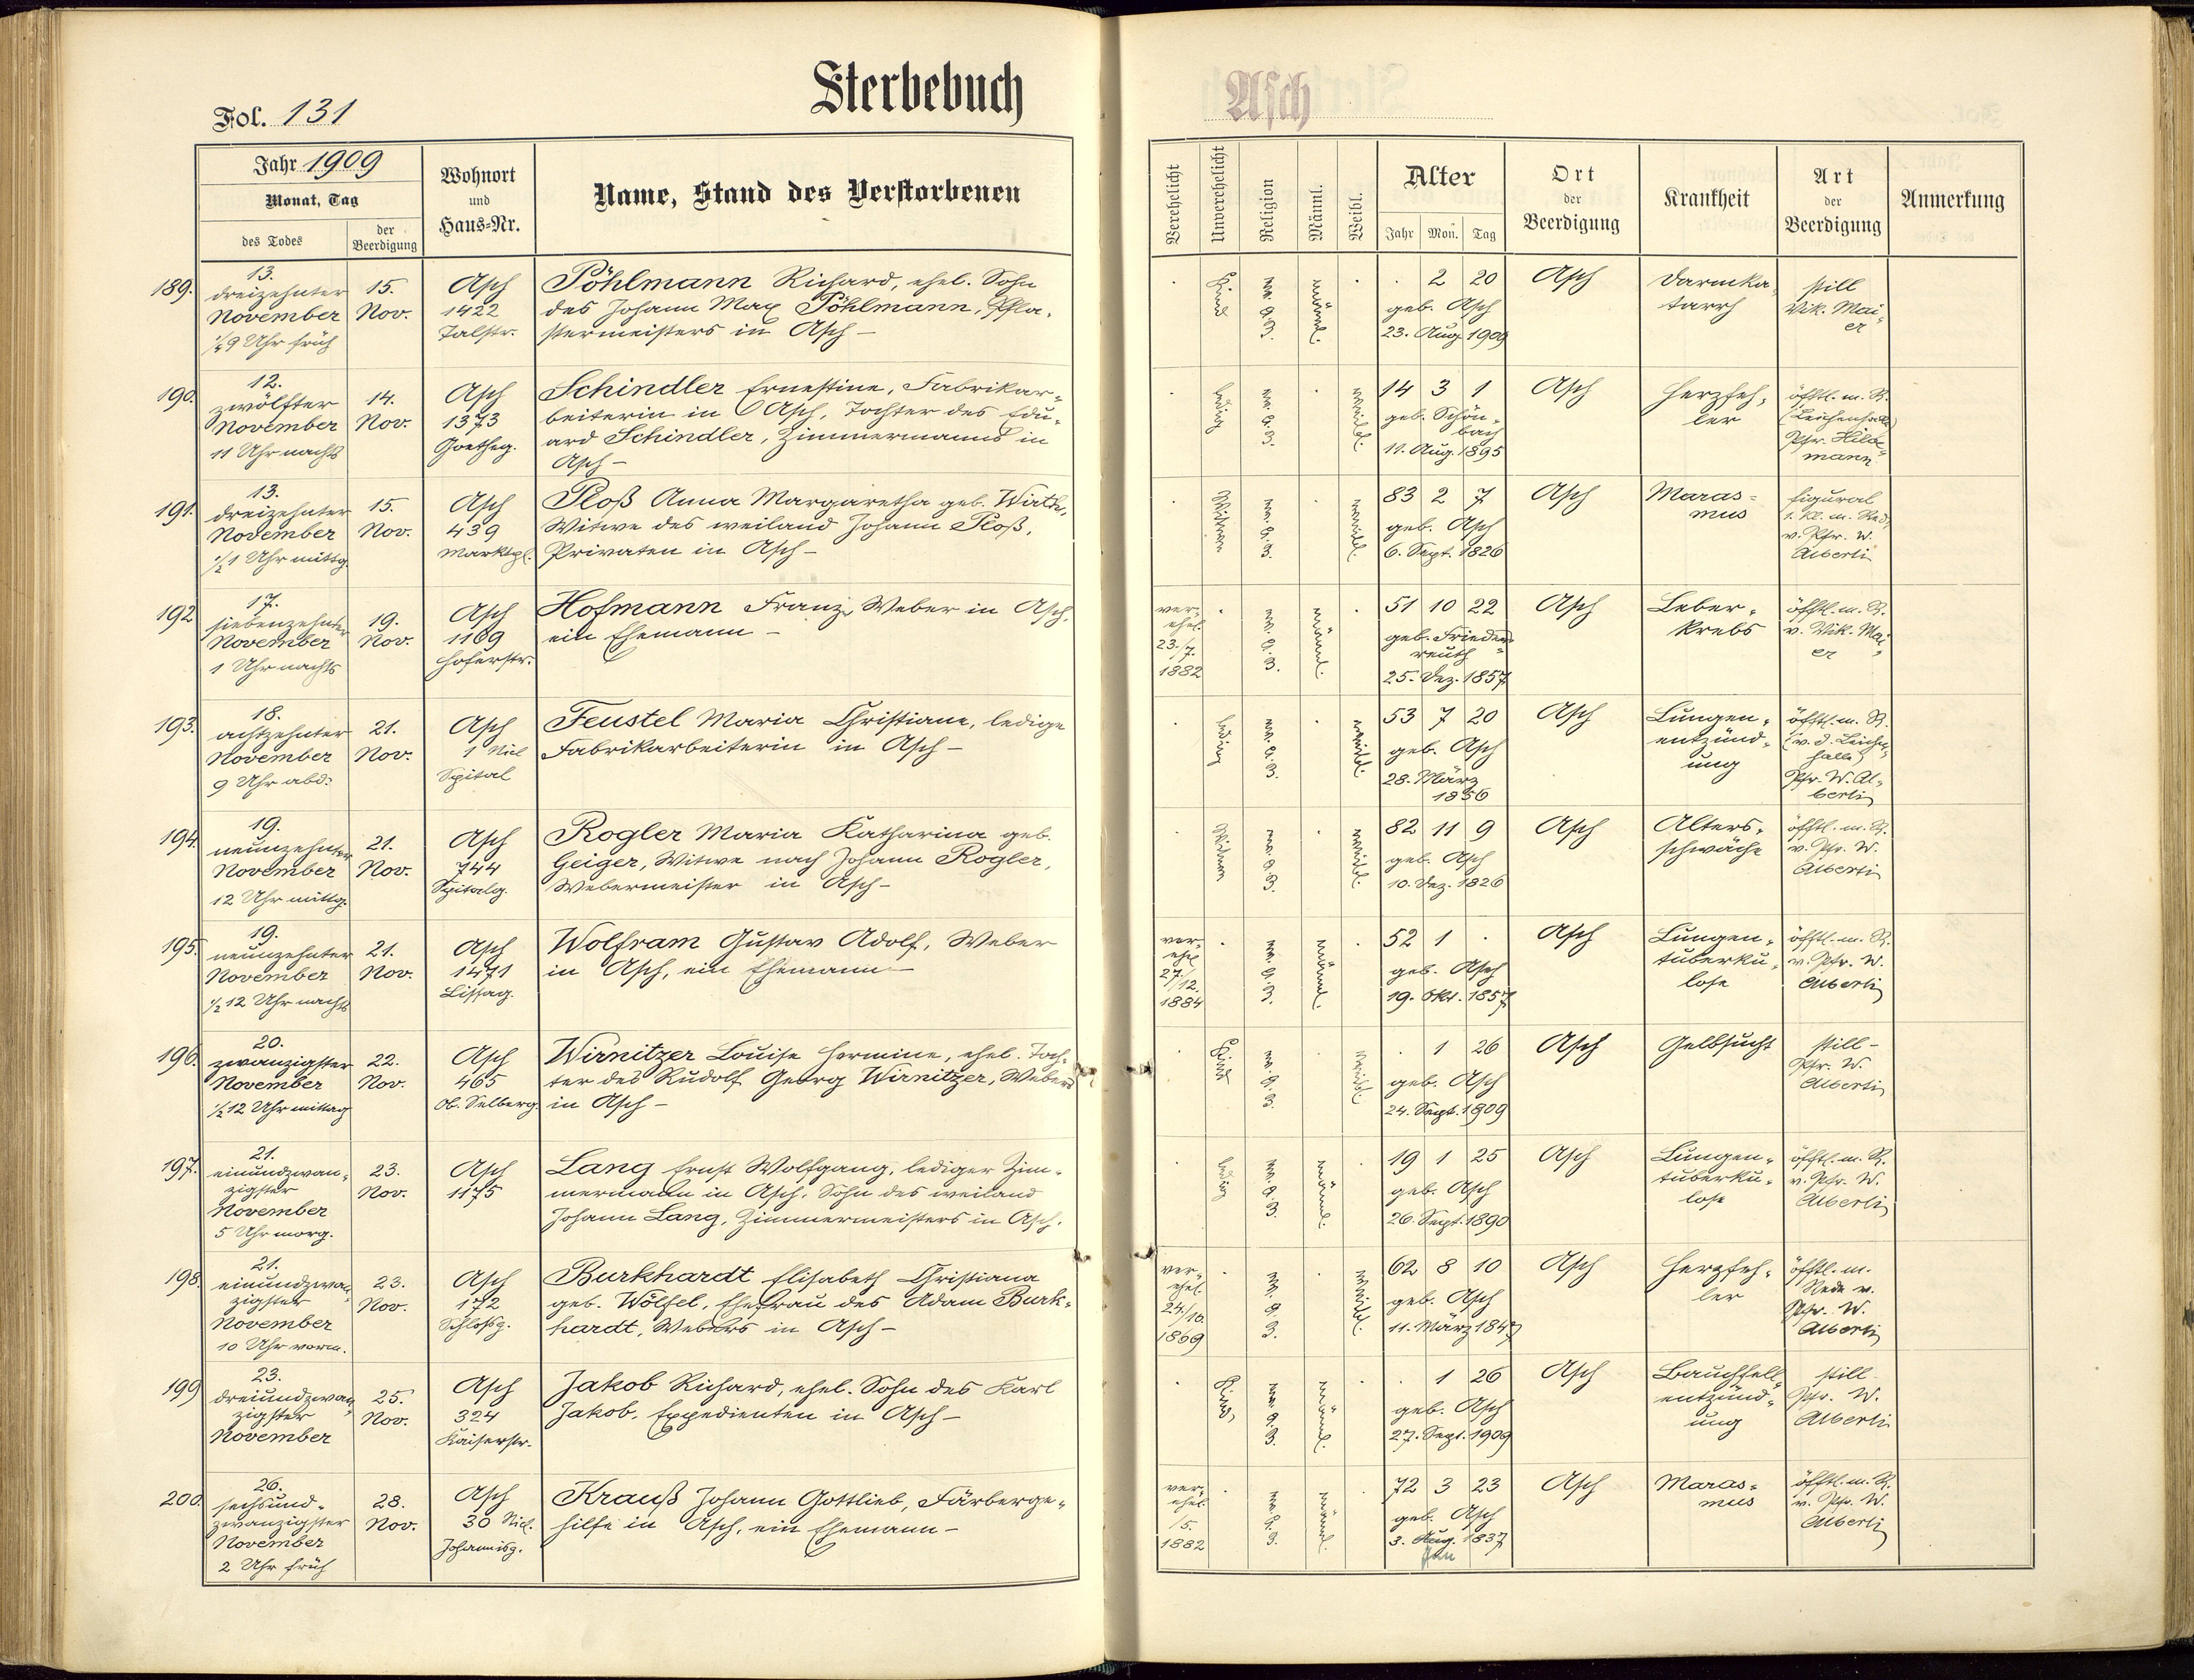 Sterbebuch
Asch
Fol. 131
Jahr 1909
Monat, Tag
des Todes
der Beerdigung
Wohnort
und
Haus=Nr.
Name, Stand des Verstorbenen
Verehelicht
Unverehelicht
Religion
Männl.
Weibl.
Alter
Jahr Mon. Tag
Ort
der
Beerdigung
Krankheit
Art
der
Beerdigung
Anmerkung
189.
13.
dreizehnter
November
¼9 Uhr früh
15.
Nov.
Asch
1422
Talstr.
Pöhlmann Richard, ehel. Sohn
des Johann Max Pöhlmann, Pfla-
stermeisters in Asch –
Kind
männl.
2 20
geb. Asch
23. Aug. 1909
Asch
Darmka-
tarrh
still
Vik. Mai-
er
190.
12.
zwölfter
November
11 Uhr nachts
14.
Nov.
Asch
1373
Goetheg.
Schindler Ernestine, Fabrikar-
beiterin in Asch, Tochter des Edu-
ard Schindler, Zimmermanns in
Asch –
ledig
weibl.
14 3 1
geb. Schön-
bach
11. Aug. 1895
Asch
Herzfeh-
ler
öfftl. m. R.
(Leichenhalle)
Pfr. Hilde-
mann
191.
13.
dreizehnter
November
½1 Uhr mittg.
15.
Nov.
Asch
439
Marktpl.
Ploß Anna Margaretha geb. Wirth,
Witwe des weiland Johann Ploß,
Privaten in Asch –
Witwe
weibl.
83 2 7
geb. Asch
6. Sept. 1826
Asch
Maras-
mus
figural
1. Kl. m. Rede
v. Pfr. W.
Alberti
192
17.
siebenzehnter
November
1 Uhr nachts
19.
Nov.
Asch
1169
Hoferstr.
Hofmann Franz, Weber in Asch,
ein Ehemann –
ver-
ehel.
23./7.
1882
männl.
51 10 22
geb. Frieders-
reuth
25. Dez. 1857
Asch
Leber-
krebs
öfftl. m. R.
v. Vik. Mai-
er
193.
18.
achtzehnter
November
9 Uhr abd.
21.
Nov.
Asch
1 Nicl
Spital
Feustel Maria Christiane, ledige
Fabrikarbeiterin in Asch –
ledig
weibl.
53 7 20
geb. Asch
28. März
1856
Asch
Lungen-
entzünd-
ung
öfftl. m. R.
(v. d. Leichen-
halle)
Pfr. W. Al-
berti
194.
19.
neunzehnter
November
12 Uhr mittg.
21.
Nov.
Asch
744
Spitalg.
Rogler Maria Katharina geb.
Geiger, Witwe nach Johann Rogler,
Webermeister in Asch –
Witwe
weibl.
82 11 9
geb. Asch
10. Dez. 1826
Asch
Alters-
schwäche
öfftl. m. R.
v. Pfr. W.
Alberti
195.
19.
neunzehnter
November
½12 Uhr nachts
21.
Nov.
Asch
1471
Lissag.
Wolfram Gustav Adolf, Weber
in Asch, ein Ehemann –
ver-
ehel
27./12.
1884
männl.
52 1 .
geb. Asch
19. Okt. 1857
Asch
Lungen-
tuberku-
lose
öfftl. m. R.
v. Pfr. W.
Alberti
196.
20.
zwanzigster
November
½12 Uhr mittag
22.
Nov.
Asch
465
Ob. Selberg.
Wirnitzer Louise Hermine, ehel. Toch-
ter des Rudolf Georg Wirnitzer, Webers
in Asch –
Kind
weibl.
1 26
geb. Asch
24. Sept. 1909
Asch
Gelbsucht
still –
Pfr. W.
Alberti
197.
21.
einundzwan-
zigster
November
5 Uhr morg.
23.
Nov.
Asch
1175
Lang Ernst Wolfgang, lediger Zim-
mermann in Asch, Sohn des weiland
Johann Lang, Zimmermeisters in Asch.
ledig
männl.
19 1 25
geb. Asch
26. Sept. 1890
Asch
Lungen-
tuberku-
lose
öfftl. m. R.
v. Pfr. W.
Alberti
198.
21.
einundzwan-
zigster
November
10 Uhr vorm.
23.
Nov.
Asch
172
Schloßg.
Burkhardt Elisabeth Christiana
geb. Wölfel, Ehefrau des Adam Burk-
hardt, Webers in Asch –
ver-
ehel.
24./10.
1869
weibl.
62 8 10
geb. Asch
11. März 1847
Asch
Herzfeh-
ler
öfftl. m.
Rede v.
Pfr. W.
Alberti
199
23.
dreiundzwan-
zigster
November
25.
Nov.
Asch
324
Kaiserstr.
Jakob Richard, ehel. Sohn des Karl
Jakob, Expedienten in Asch –
Kind
männl.
1 26
geb. Asch
27. Sept. 1909
Asch
Bauchfell-
entzünd-
ung
still
Pfr. W.
Alberti
200.
26.
sechsund-
zwanzigster
November
2 Uhr früh
28.
Nov.
Asch
30 Nicl.
Johannisg.
Krauß Johann Gottlieb, Färberge-
hilfe in Asch, ein Ehemann –
ver-
ehel
/5.
1882
männl.
72 3 23
geb. Asch
3. Aug. 1837
Asch
Maras-
mus
öfftl. m. R.
v. Pfr. W.
Alberti